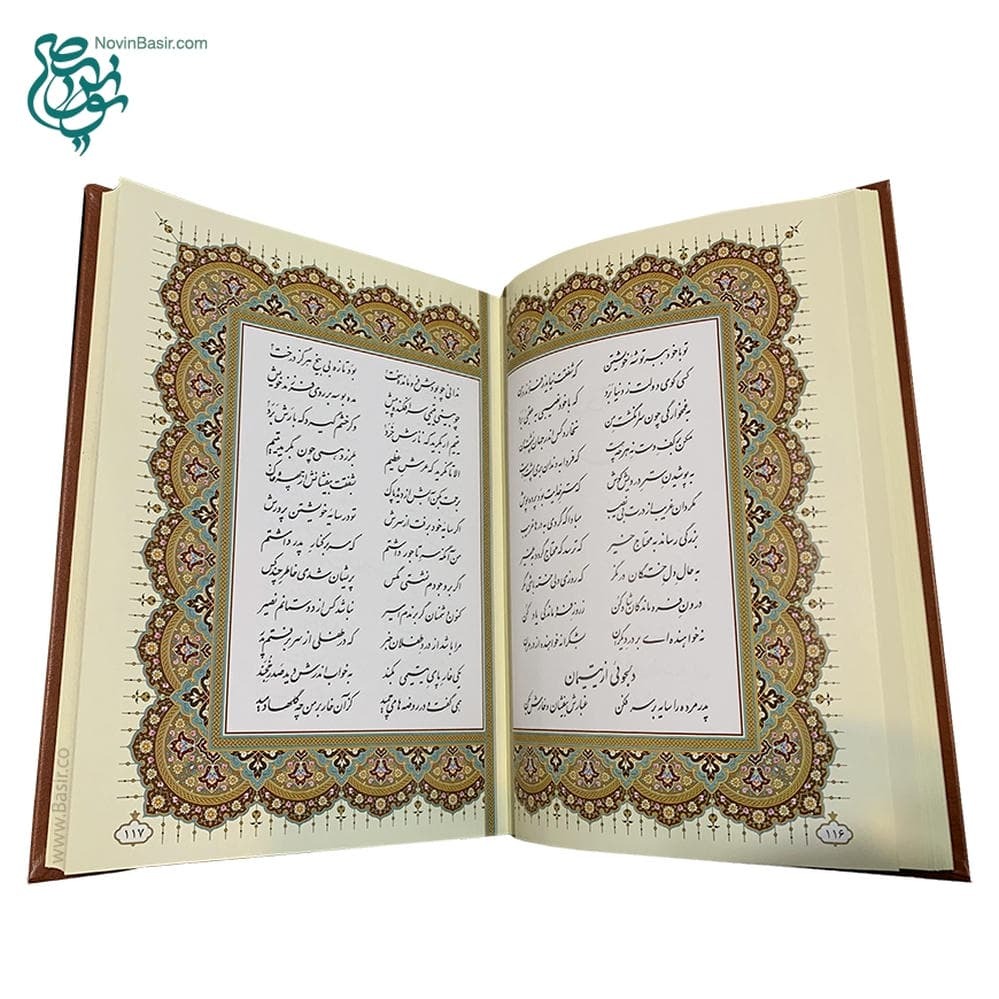 NovinBasir.com
تو با خود ببر توشه خویشتن که شفقت نیاید ز فرزند و زن
کسی گوی دولت ز دنیا برد که با خود نصیبی به عقبی برد
به غمخوارگی چون سرانگشت من نخارد کس اندر جهان پشت من
مکن بر کف دست نه هر چه هست که فردا به دندان بری پشت دست
به پوشیدن ستر درویش کوش که ستر خدایت بود پرده پوش
مگردان غریب از درت بی نصیب مبادا که گردی به درها غریب
بزرگی رساند به محتاج خیر که ترسد که محتاج گردد به غیر
به حال دل خستگان در نگر که روزی دلی خسته باشی مگر
درون فروماندگان شاد کن ز روز فروماندگی یاد کن
نه خواهنده ای بر در دیگران به شکرانه خواهنده از در مران
دلجوئی از یتیمان
پدر مرده را سایه بر سر فکن غبارش بیفشان و خارش بکن
۱۱۶
ندانی چه بودش فرو مانده سخت؟ بود تازه بی بیخ هرگز درخت؟
چو بینی یتیمی سر افکنده پیش مده بوسه بر روی فرزند خویش
یتیم ار بگرید که نازش خرد وگر خشم گیرد که بارش برد
الا تا نگرید که عرش عظیم بلرزد همی چون بگرید یتیم
به رحمت بکن آبش از دیده پاک به شفقت بیفشانش از چهره خاک
اگر سایه خود برفت از سرش تو در سایه خویشتن پرورش
من آنگه سر تاجور داشتم که سر بر کنار پدر داشتم
اگر بر وجودم نشستی مگس پریشان شدی خاطر چند کس
کنون دشمنان گر برندم اسیر نباشد کس از دوستانم نصیر
مرا باشد از درد طفلان خبر که در طفلی از سر برفتم پدر
یکی خار پای یتیمی بکند به خواب اندرش دید صدر خجند
همی گفت و در روضه ها می چمید کز آن خار بر من چه گلها دمید
۱۱۷
www.Basir.co